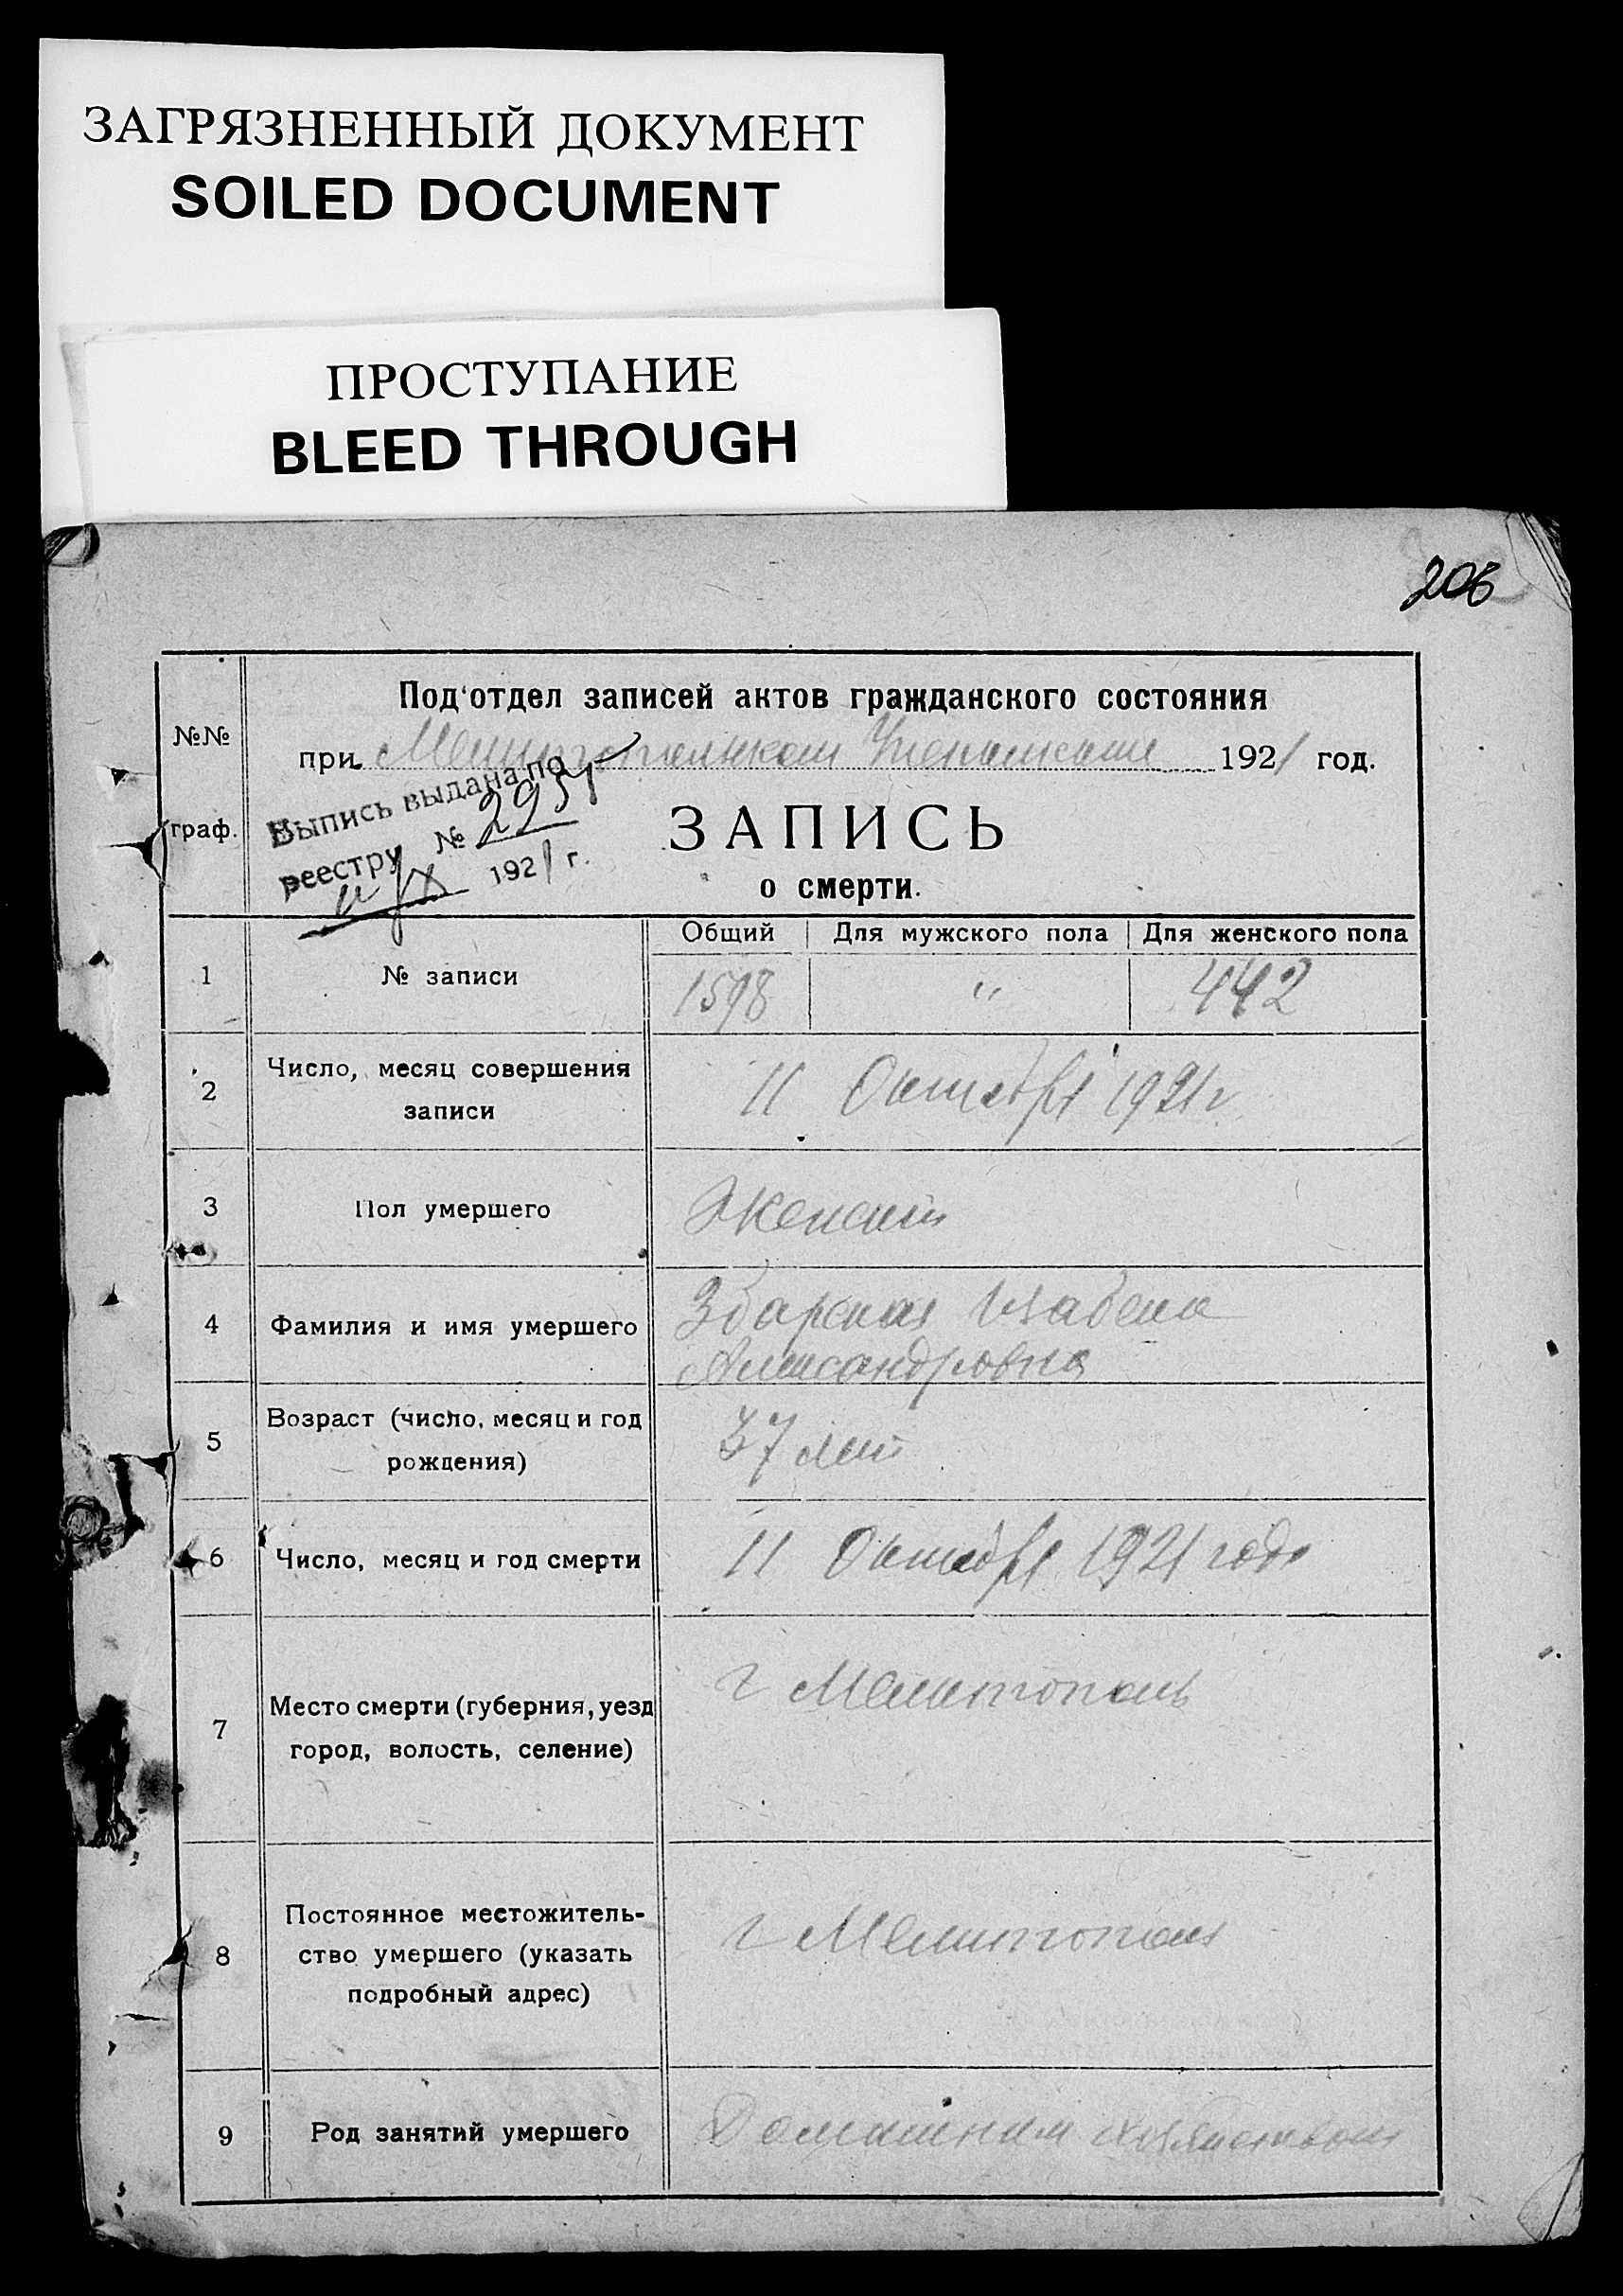 ЗАГРЯЗНЕННЫЙ ДОКУМЕНТ
SOILED DOCUMENT
ПРОСТУПАНИЕ
BLEED THROUGH
206
Под'отдел записей актов гражданского состояния
№№
при 1921 год.
Выпись выдана по
граф.
реестру №
1921 г.
ЗАПИСЬ
о смерти.
Общий Для мужского пола Для женского пола
1 № записи 1598 " 442
2 Число, месяц совершения
записи
11 Октября 1921 г.
3 Пол умершего Женский
4 Фамилия и имя умершего
Збарская Изабела
Александровна
5 Возраст (число, месяц и год
рождения)
37 лет
6 Число, месяц и год смерти 11 Октября 1921 года
7 Место смерти (губерния, уезд
город, волость, селение)
г Мелитополь
8 Постоянное местожитель-
ство умершего (указать
подробный адрес)
г Мелитополь
9 Род занятий умершего Домашним хозяйством